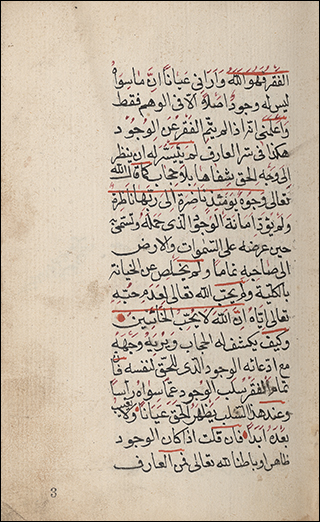 الفقر فهو الله وأراني عيانا ان ما سواه
ليس له وجود اصلا الا في الوهم فقط
واعلمني انه اذا لم يتم الفقر عن الوجود
هكذا في سر العارف لم يتيسر له ان ينظر
الى وجه الحق شفاها بلا حجاب كما قال الله
تعالى وجوه يومئذ ناضرة الى ربها ناظرة
ولم يؤد امانة الوجود الذي حمله وتسمى
حين عرضه على السموات والارض
الى صاحبه تماما ولم يخلص عن الخيانة
بالكلية ولم يحب الله تعالى لعدم محبته
تعالى اياه ان الله لا يحب الخائنين
وكيف يكشف له الحجاب ويريه وجهه
مع ادعائه الوجود الذي للحق لنفسه فان
تمام الفقر سلب الوجود عما سواه راسا
وعند هذا السلب يظهر الحق عيانا ولا يغيب
بعده ابدا فان قلت اذا كان الوجود
ظاهرا وباطنا لله تعالى فمن العارف
3